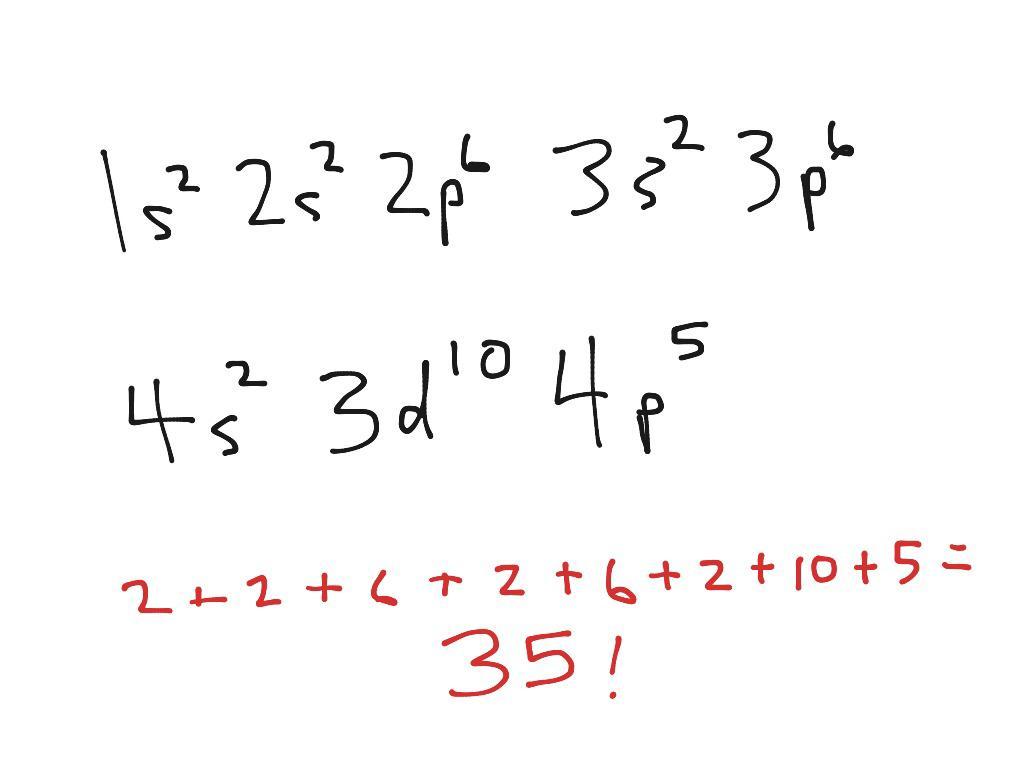 1s² 2s² 2p⁶ 3s² 3p⁶
4s² 3d¹⁰ 4p⁵
2 + 2 + 6 + 2 + 6 + 2 + 10 + 5 =
35!